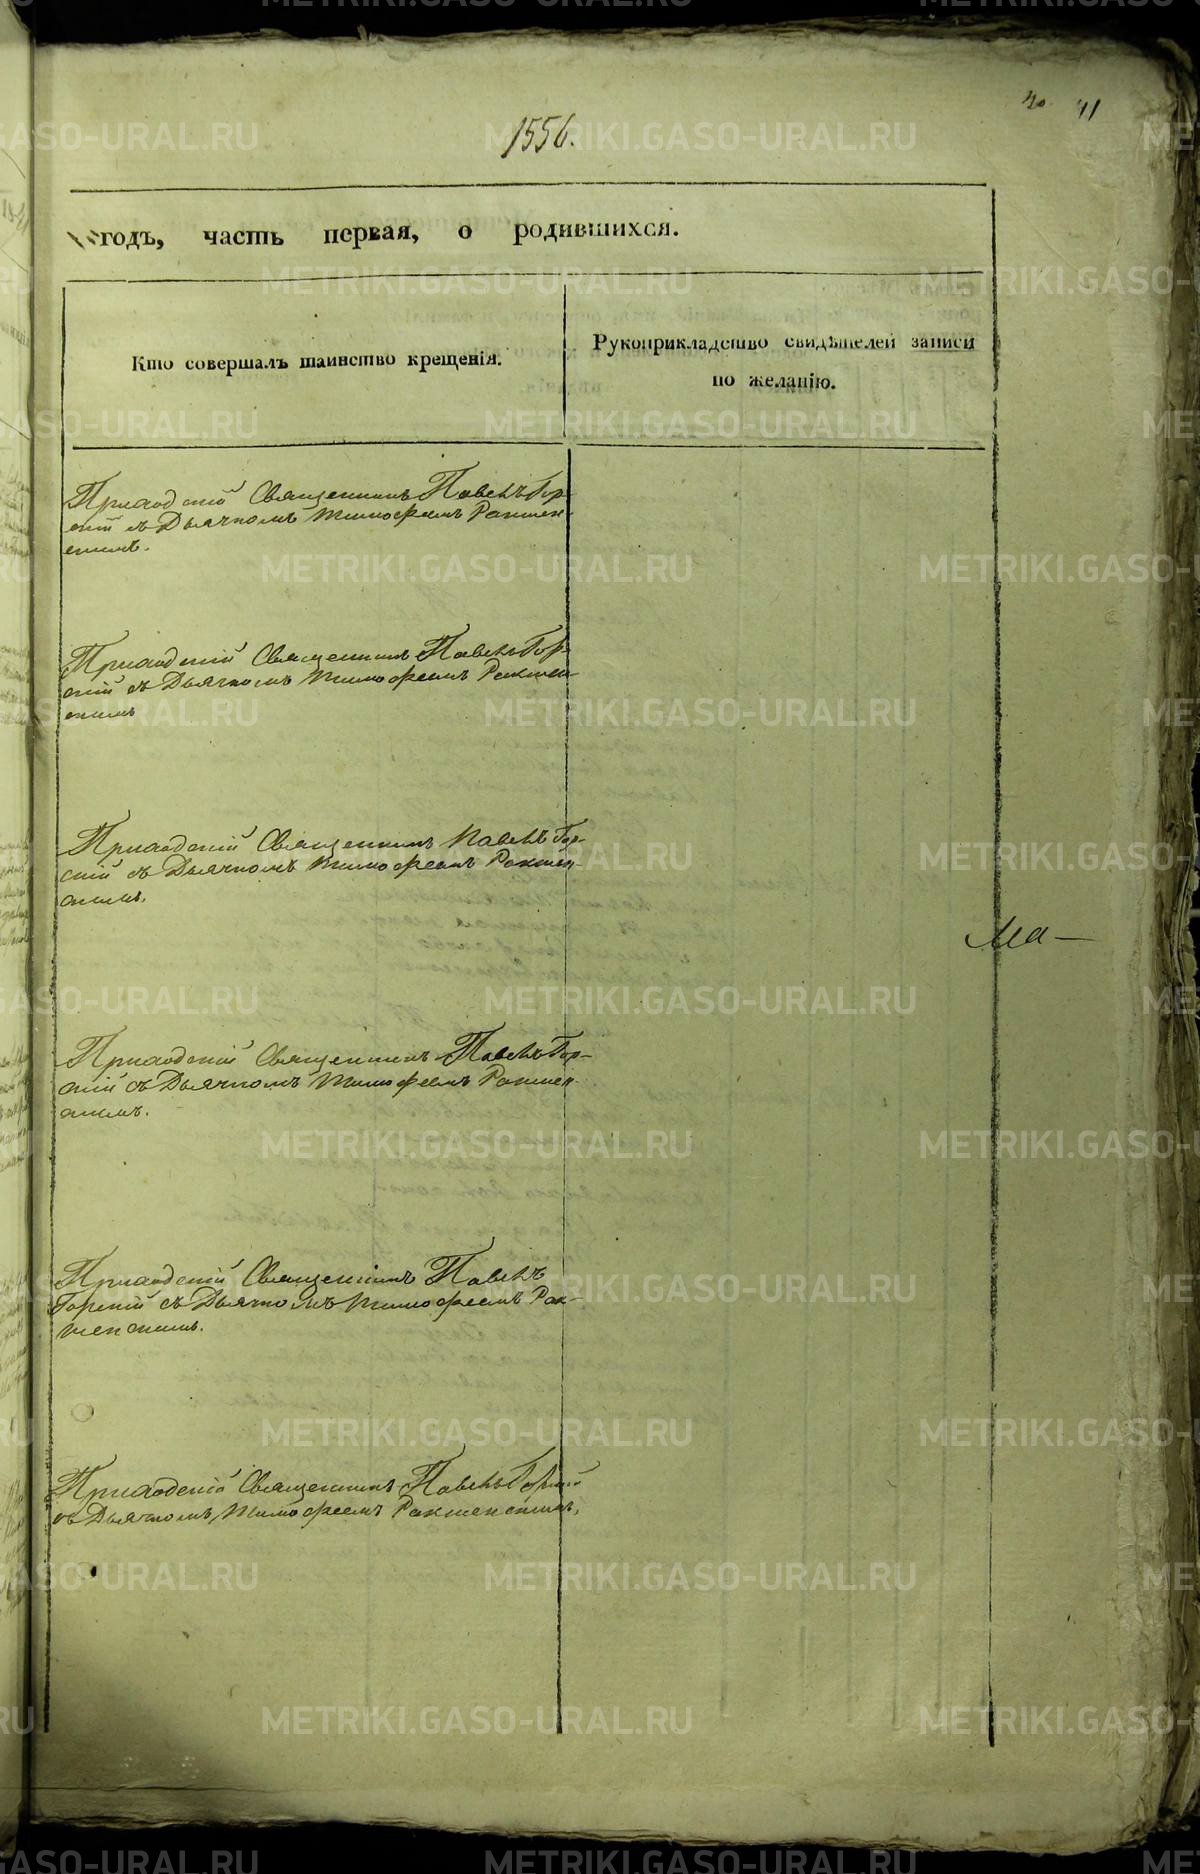 40 41
1556.
годъ, часть первая, о родившихся.
Кто совершалъ таинство крещенія.
Рукоприкладство свидѣтелей записи
по желанію.
Приходскій Священникъ Павелъ Гор-
скій съ Дьячкомъ Тимофеемъ
Приходскій Священникъ Павелъ Гор-
скій съ Дьячкомъ Тимофеемъ
Приходскій Священникъ Павелъ Гор-
скій съ Дьячкомъ Тимофеемъ
Ма—
Приходскій Священникъ Павелъ Гор-
скій съ Дьячкомъ Тимофеемъ
Приходскій Священникъ Павелъ
Горскій съ Дьячкомъ Тимофеемъ
Приходскій Священникъ Павелъ Горскій
съ Дьячкомъ Тимофеемъ
METRIKI.GASO-URAL.RU